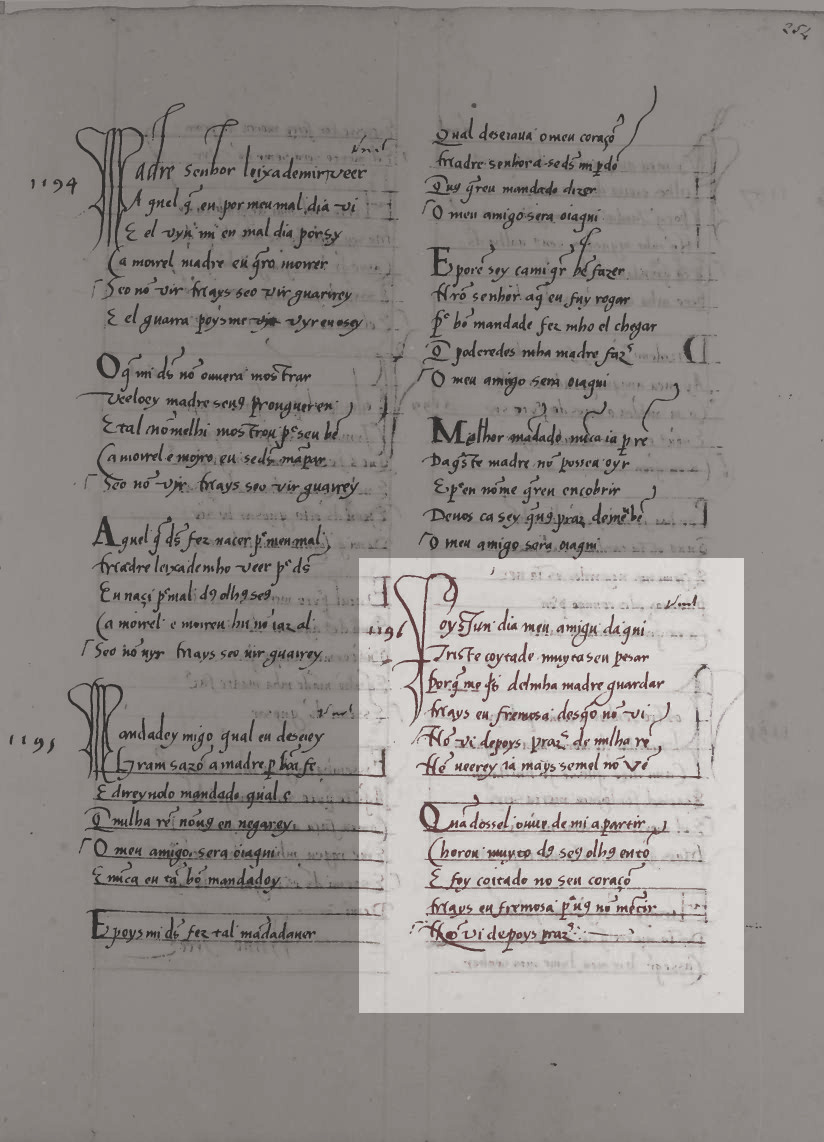 254
1194
Madre senhor leixademir veer
Aquel q̄ eu por meu mal dia vi
E el vyu mi en mal dia por sy
Ca morrel madre eu q̄ro morrer
Seo nō vir Mays seo vir guarirey
E el guarra poys me vyr eu o sey
O q̄ mi ds̄ nō ouuera mostrar
E tal nō melhi mostrou p̄ seu bē
Ca morrel e moyro eu se ds̄ mā par
Seo nō vir Mays seo vir guarrey
Aquel q̄ ds̄ fez nacer p̄ meu mal
Madre leixademho veer p̄ ds̄
Eu naçi p̄ mal d9 olh9 se9
Ca morrel e moireu hu nō iaz al
Seo nō uyr Mays seo uir guarrey
1195
Mandadey migo qual eu deseiey
Gram sazō a madre p bōa fe
E direyuolo mandado qual e
Q̄ nulha rē nō u9 en negarey
O meu amigo sera oiaqui
E nūca eu tā bō mandadoy
E poys mi ds̄ fez tal mādadauer
Qual deseiaua o meu coraçō
Madre senhor a se ds̄ mi pdō
Qu9 q̄reu mandado dizer
O meu amigo sera oiaqui
E porē sey ca mi q̄r bē fazer
Nrō senhor aq̄ eu fuy rogar
P̄ bō mandade fez mho el chegar
Q̄ poderedes mha madre faz̄
O meu amigo sera oiaqui
Melhor mādado nūca ia p re
Daq̄ste madre nō posseu oyr
E p̄ en nōme q̄reu encobrir
De uos ca sey q̄ u9 praz de meu bē
O meu amigo sera oiaqui
1196
Poys sun dia meu amigu daqui
Triste coytade muyta seu pesar
Porq̄ me q̄s del mha madre guardar
Mays eu fremosa desq̄o nō vi
Nō vi depoys praz̄ de nulha rē
Nō ueerey ia mays se mel nō vē
Quādossel ouue de mi a partir
Chorou muyto d9 se9 olh9 entō
E foy coitado no seu coraçō
Mays eu fremosa p̄ u9 nō mētir
Nō vi depoys praz̄